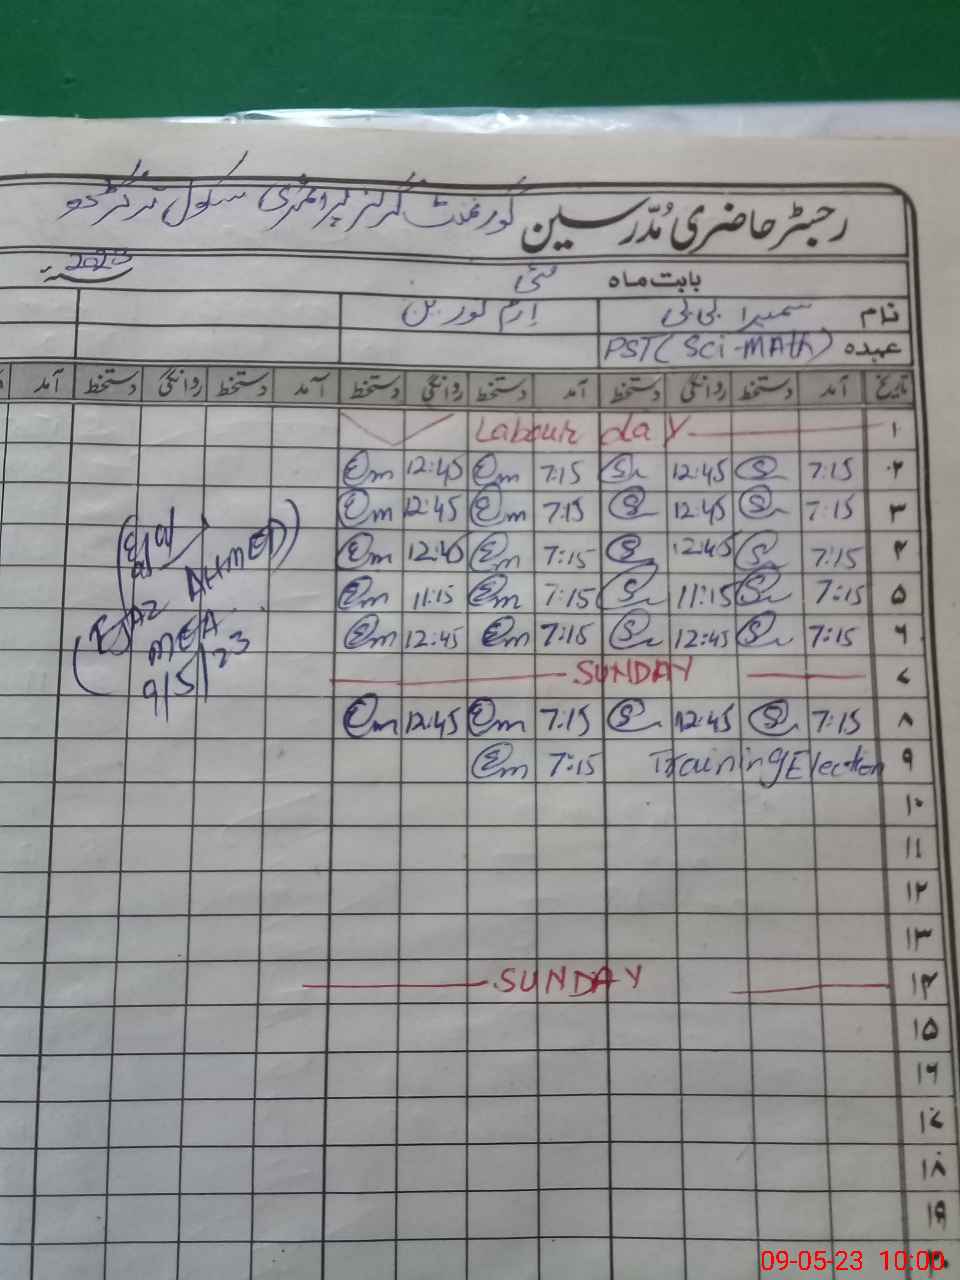 رجسٹر حاضری مُدّرسین گورنمنٹ گرلز پرائمری سکول
بابت ماہ مئی سنہ 2023
نام سمیرا بی بی ارم نورین
عہدہ PST (Sci-MAth)
تاریخ آمد دستخط روانگی دستخط آمد دستخط روانگی دستخط آمد دستخط روانگی دستخط آمد
۱ Labour day
۲ 7:15 S 12:45 S 7:15 Em 12:45 Em
۳ 7:15 S 12:45 S 7:15 Em 12:45 Em
۴ 7:15 S 12:45 S 7:15 Em 12:45 Em
۵ 7:15 S 11:15 S 7:15 Em 11:15 Em
۶ 7:15 S 12:45 S 7:15 Em 12:45 Em
۷ SUNDAY
۸ 7:15 S 12:45 S 7:15 Em 12:45 Em
۹ Training Election 7:15 Em
۱۰
۱۱
۱۲
۱۳
۱۴ SUNDAY
۱۵
۱۶
۱۷
۱۸
۱۹
(EJAZ AHMED)
MEA
9/5/23
09-05-23 10:00